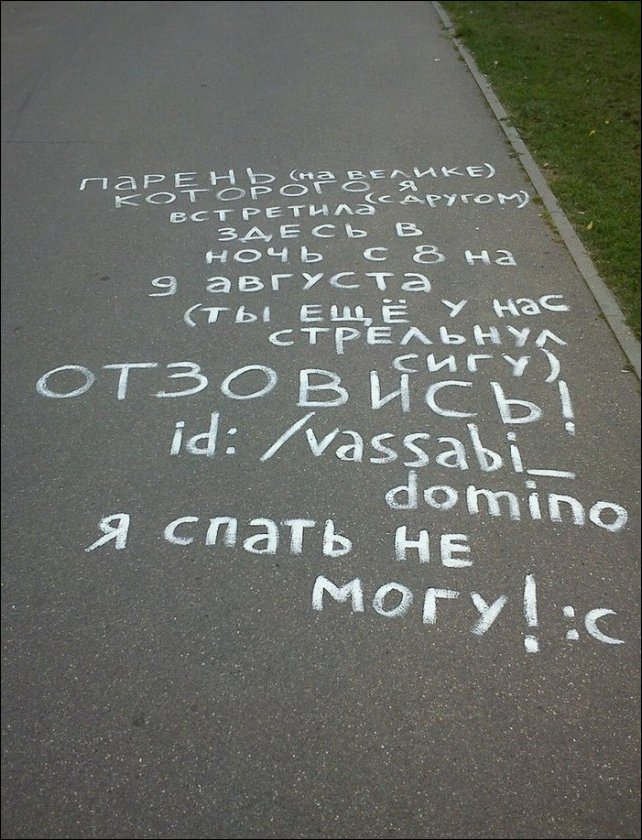 ПАРЕНЬ (на ВЕЛИКЕ)
КОТОРОГО Я
ВСТРЕТИЛа (С ДРУГОМ)
ЗДЕСЬ В
НОЧЬ С 8 на
9 августа
(ТЫ ЕЩЁ У нас
СТРЕЛЬНУЛ
СИГУ)
ОТЗОВИСЬ!
id: /vassabi_
domino
Я спать НЕ
МОГУ! :с